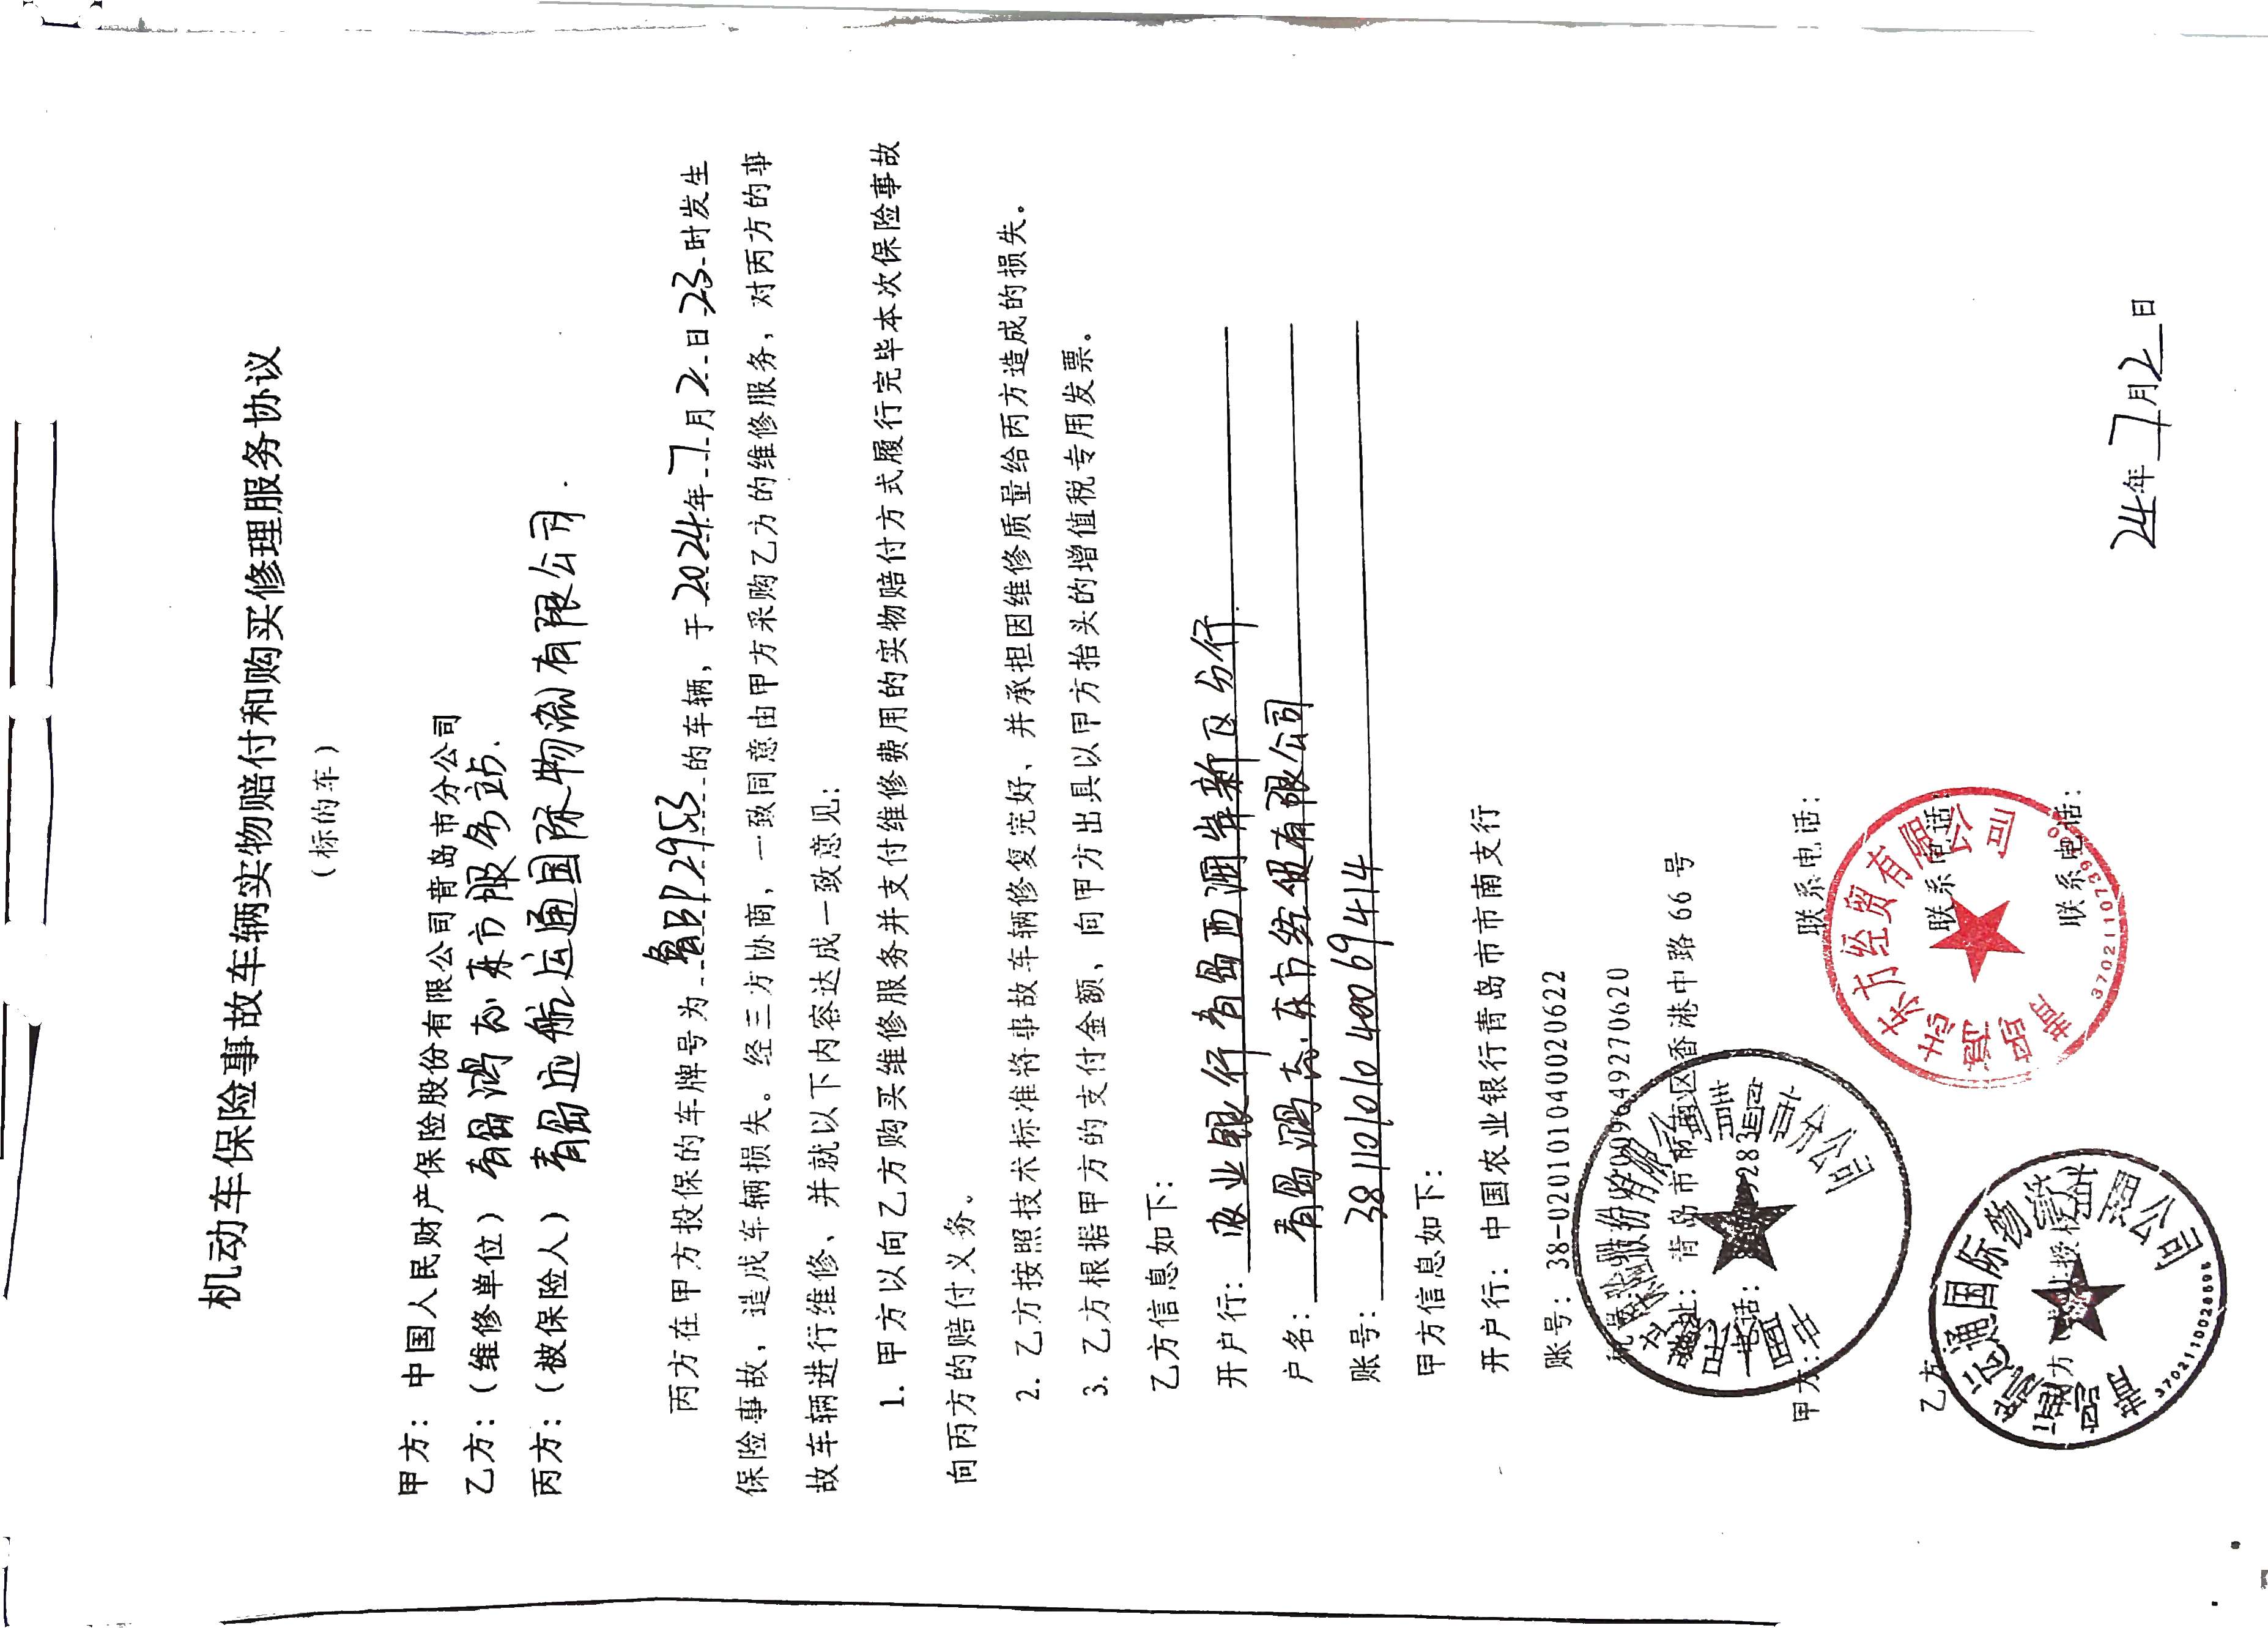 机动车保险事故车辆实物赔付和购买修理服务协议
（标的车）
甲方：中国人民财产保险股份有限公司青岛市分公司
乙方：（维修单位）青岛鸿志东方服务站.
丙方：（被保险人）青岛运航运通国际物流有限公司.
丙方在甲方投保的车牌号为 鲁BP2953 的车辆，于 2024 年 7 月 2 日 23 时发生
保险事故，造成车辆损失。经三方协商，一致同意由甲方采购乙方的维修服务，对丙方的事
故车辆进行维修、并就以下内容达成一致意见：
1. 甲方以向乙方购买维修服务并支付维修费用的实物赔付方式履行完毕本次保险事故
向丙方的赔付义务。
2. 乙方按照技术标准将事故车辆修复完好、并承担因维修质量给丙方造成的损失。
3. 乙方根据甲方的支付金额，向甲方出具以甲方抬头的增值税专用发票。
乙方信息如下：
开户行： 农业银行青岛西海岸新区分行
户名： 青岛鸿志东方经贸有限公司
账号： 38110101040069414
甲方信息如下：
开户行：中国农业银行青岛市市南支行
账号：38-020101040020622
地址：青岛市市南区香港中路 66 号
电话：
甲方： 联系电话：
乙方 联系电话：
丙方 联系电话：
东方经贸有限公司
3702110739
通国际物流有限公司
3702110028698
24 年 7 月 2 日